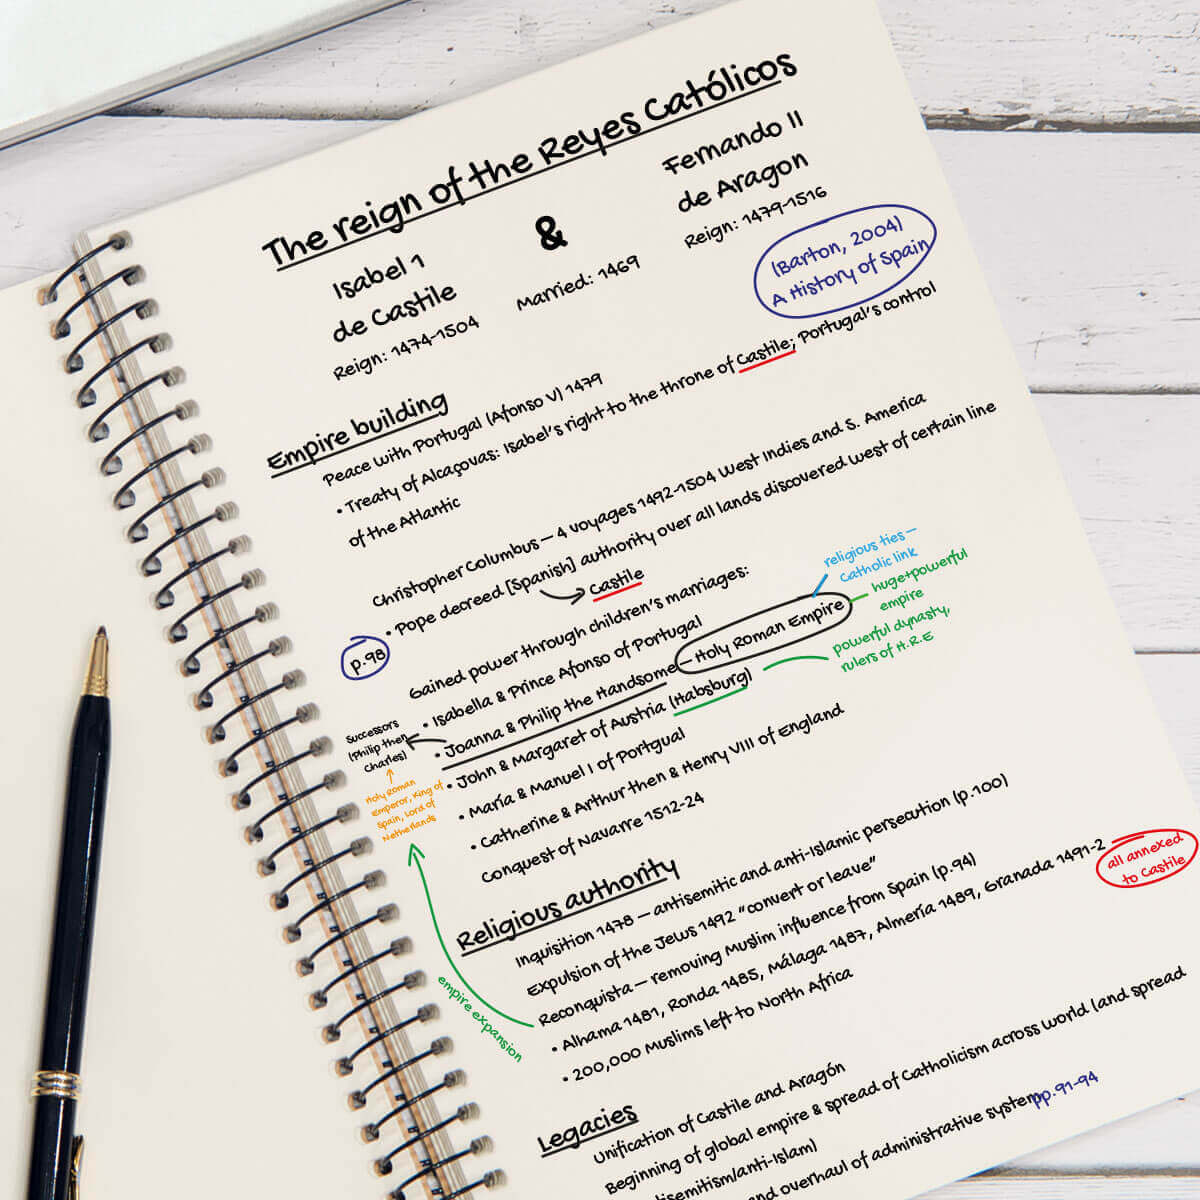 The reign of the Reyes Católicos
Isabel 1
de Castile
Reign: 1474-1504
&
Married: 1469
Fernando II
de Aragon
Reign: 1479-1516
(Barton, 2004)
A History of Spain
Empire building
Peace with Portugal (Afonso V) 1479
• Treaty of Alcaçovas: Isabel's right to the throne of Castile; Portugal's control
of the Atlantic
Christopher Columbus – 4 voyages 1492-1504 West Indies and S. America
• Pope decreed [Spanish] authority over all lands discovered west of certain line
Castile
p.98
Gained power through children's marriages:
• Isabella & Prince Afonso of Portugal
• Joanna & Philip the Handsome – Holy Roman Empire
• John & Margaret of Austria (Habsburg)
• María & Manuel I of Portgual
• Catherine & Arthur then & Henry VIII of England
Conquest of Navarre 1512-24
religious ties –
Catholic link
huge+powerful
empire
powerful dynasty,
rulers of H.R.E
Successors
(Philip then
Charles)
Holy Roman
Emperor, King of
Spain, Lord of
Netherlands
Religious authority
Inquisition 1478 – antisemitic and anti-Islamic persecution (p.100)
Expulsion of the Jews 1492 "convert or leave"
Reconquista – removing Muslim influence from Spain (p.94)
• Alhama 1481, Ronda 1485, Málaga 1487, Almería 1489, Granada 1491-2
• 200,000 Muslims left to North Africa
all annexed
to Castile
empire expansion
Legacies
Unification of Castile and Aragón
Beginning of global empire & spread of Catholicism across world (and spread
isemitism/anti-Islam)
nd overhaul of administrative system
pp.91-94